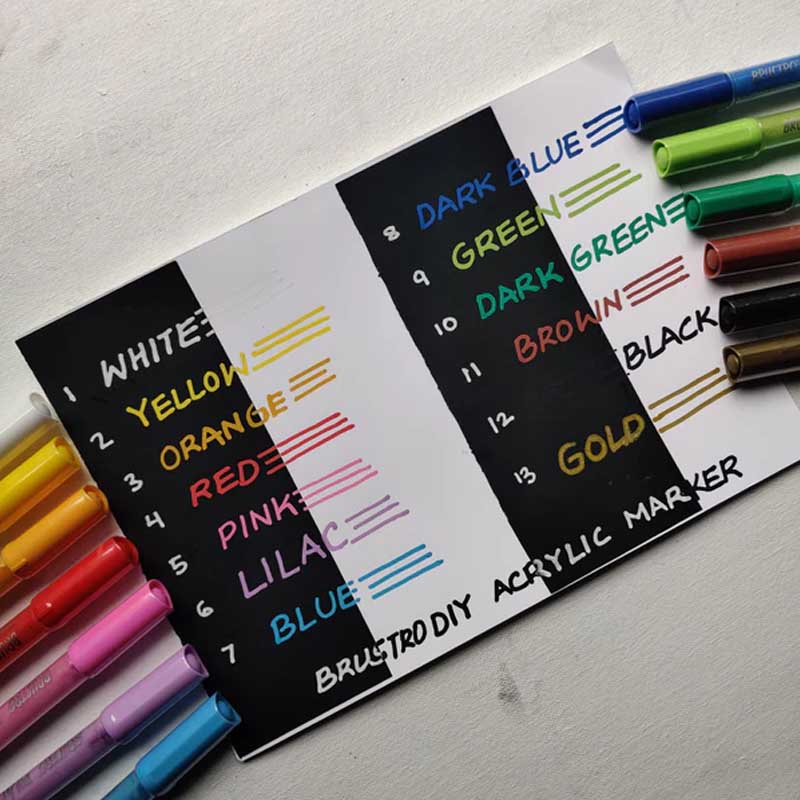 1 WHITE
2 YELLOW
3 ORANGE
4 RED
5 PINK
6 LILAC
7 BLUE
8 DARK BLUE
9 GREEN
10 DARK GREEN
11 BROWN
12 BLACK
13 GOLD
BRUSTRO DIY ACRYLIC MARKER